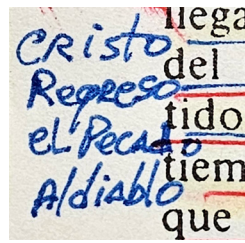 CRisto
Regreso
eL Pecado
Al diablo
llega
del
tido
tiem
que